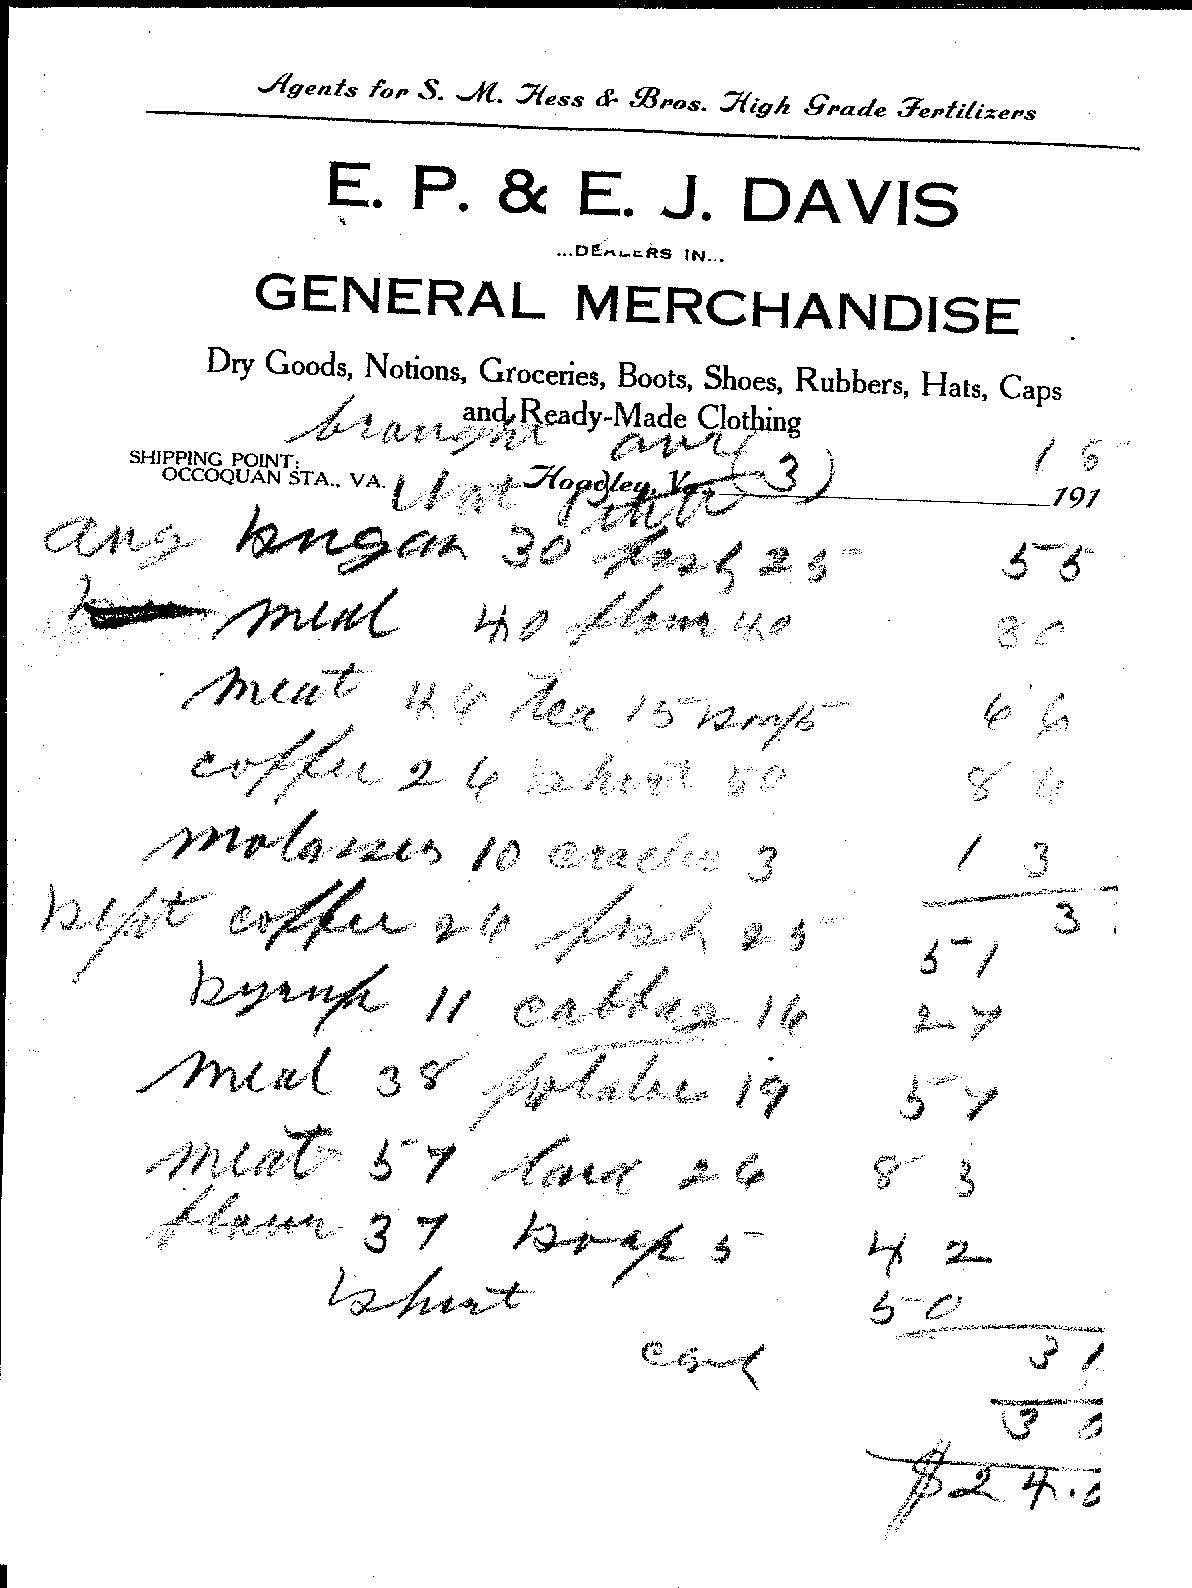 Agents for S. M. Hess & Bros. High Grade Fertilizers
E. P. & E. J. DAVIS
...DEALERS IN...
GENERAL MERCHANDISE
Dry Goods, Notions, Groceries, Boots, Shoes, Rubbers, Hats, Caps
and Ready-Made Clothing
brought over (3)
SHIPPING POINT:
OCCOQUAN STA., VA.
Hoadley, Va. 191
aug sugar 30 fish 25 55
meal 40 flour 40 80
meat 44 tea 15 soap 5
coffee 26 shirt 50
molasses 10 3 1 3
sept coffee 26 fish 25 51
3
syrup 11 cabbag 16 27
meal 38 potatoe 19 57
meat 57 lard 26 83
flour 37 soap 5 42
shirt 50
31
3
$24.